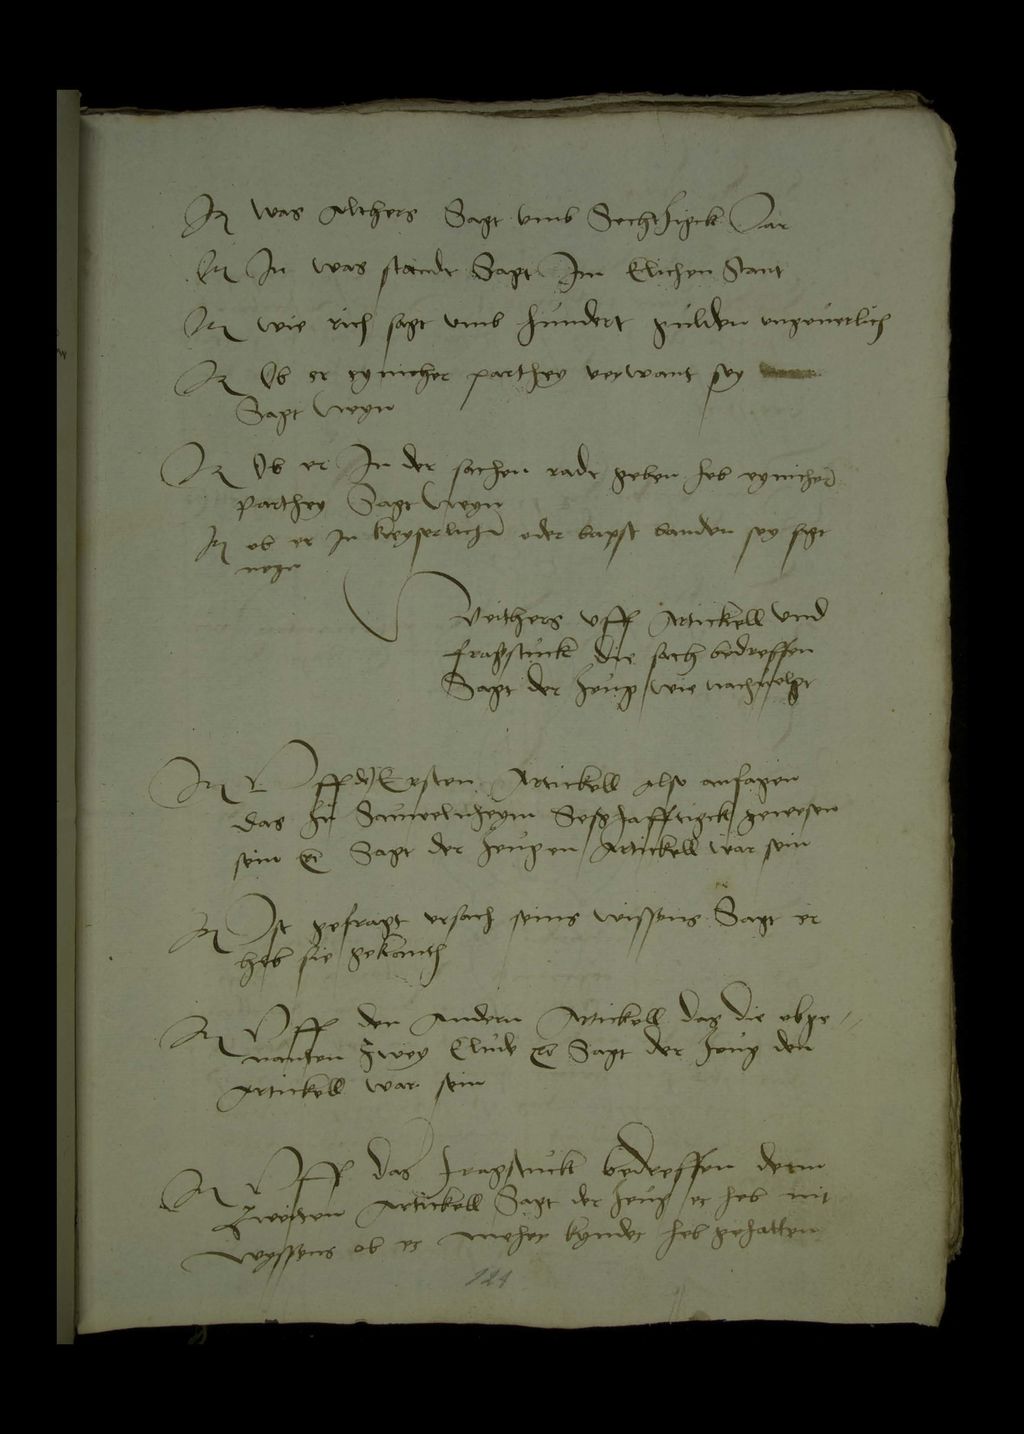 It was Althers Sagt umb Sechtzigck Jar
It In was stande Sagt Im Elichen Stant
It wie rich sagt umb hundert gulden ungeuerlich
It Ob er eynicher parthey verwant sey
Sagt Neyn
It Ob er In der sachen radt geben heb eynicher
parthey Sagt Neyn
It ob er In keyserlicher oder bapst banden sey sagt
neyn
Weithers uff Artickell und
fragstuck die sach bedreffen
Sagt der Zeug wie nachuolgt
It Uff den Ersten Artickell also anfagen
das zu Sauwelnheym Seszhafftigck gewesen
sein etc Sagt der Zeug den Artickell war sein
It Ist gefragt ursach seins wissens Sagt er
heb sie gekanth
It Uff den Andern Artickell das die obge
nanten Zwey Elude etc Sagt der Zeug den
Artickell war sein
It Uff das fragstuck bedreffen dem
Zweiten Artickell Sagt der Zeug er heb nit
wyssens ob er meher kynder heb gehatten
124